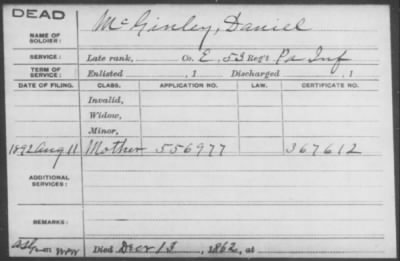 DEAD
NAME OF SOLDIER: McGinley, Daniel
SERVICE: Late rank, Co. E, 53 Reg't Pa Inf
TERM OF SERVICE: Enlisted , 1 Discharged , 1
DATE OF FILING. CLASS. APPLICATION NO. LAW. CERTIFICATE NO.
Invalid,
Widow,
Minor,
1892 Aug 11 Mother 556977 367612
ADDITIONAL SERVICES:
REMARKS:
Died Decr 13, 1862, at